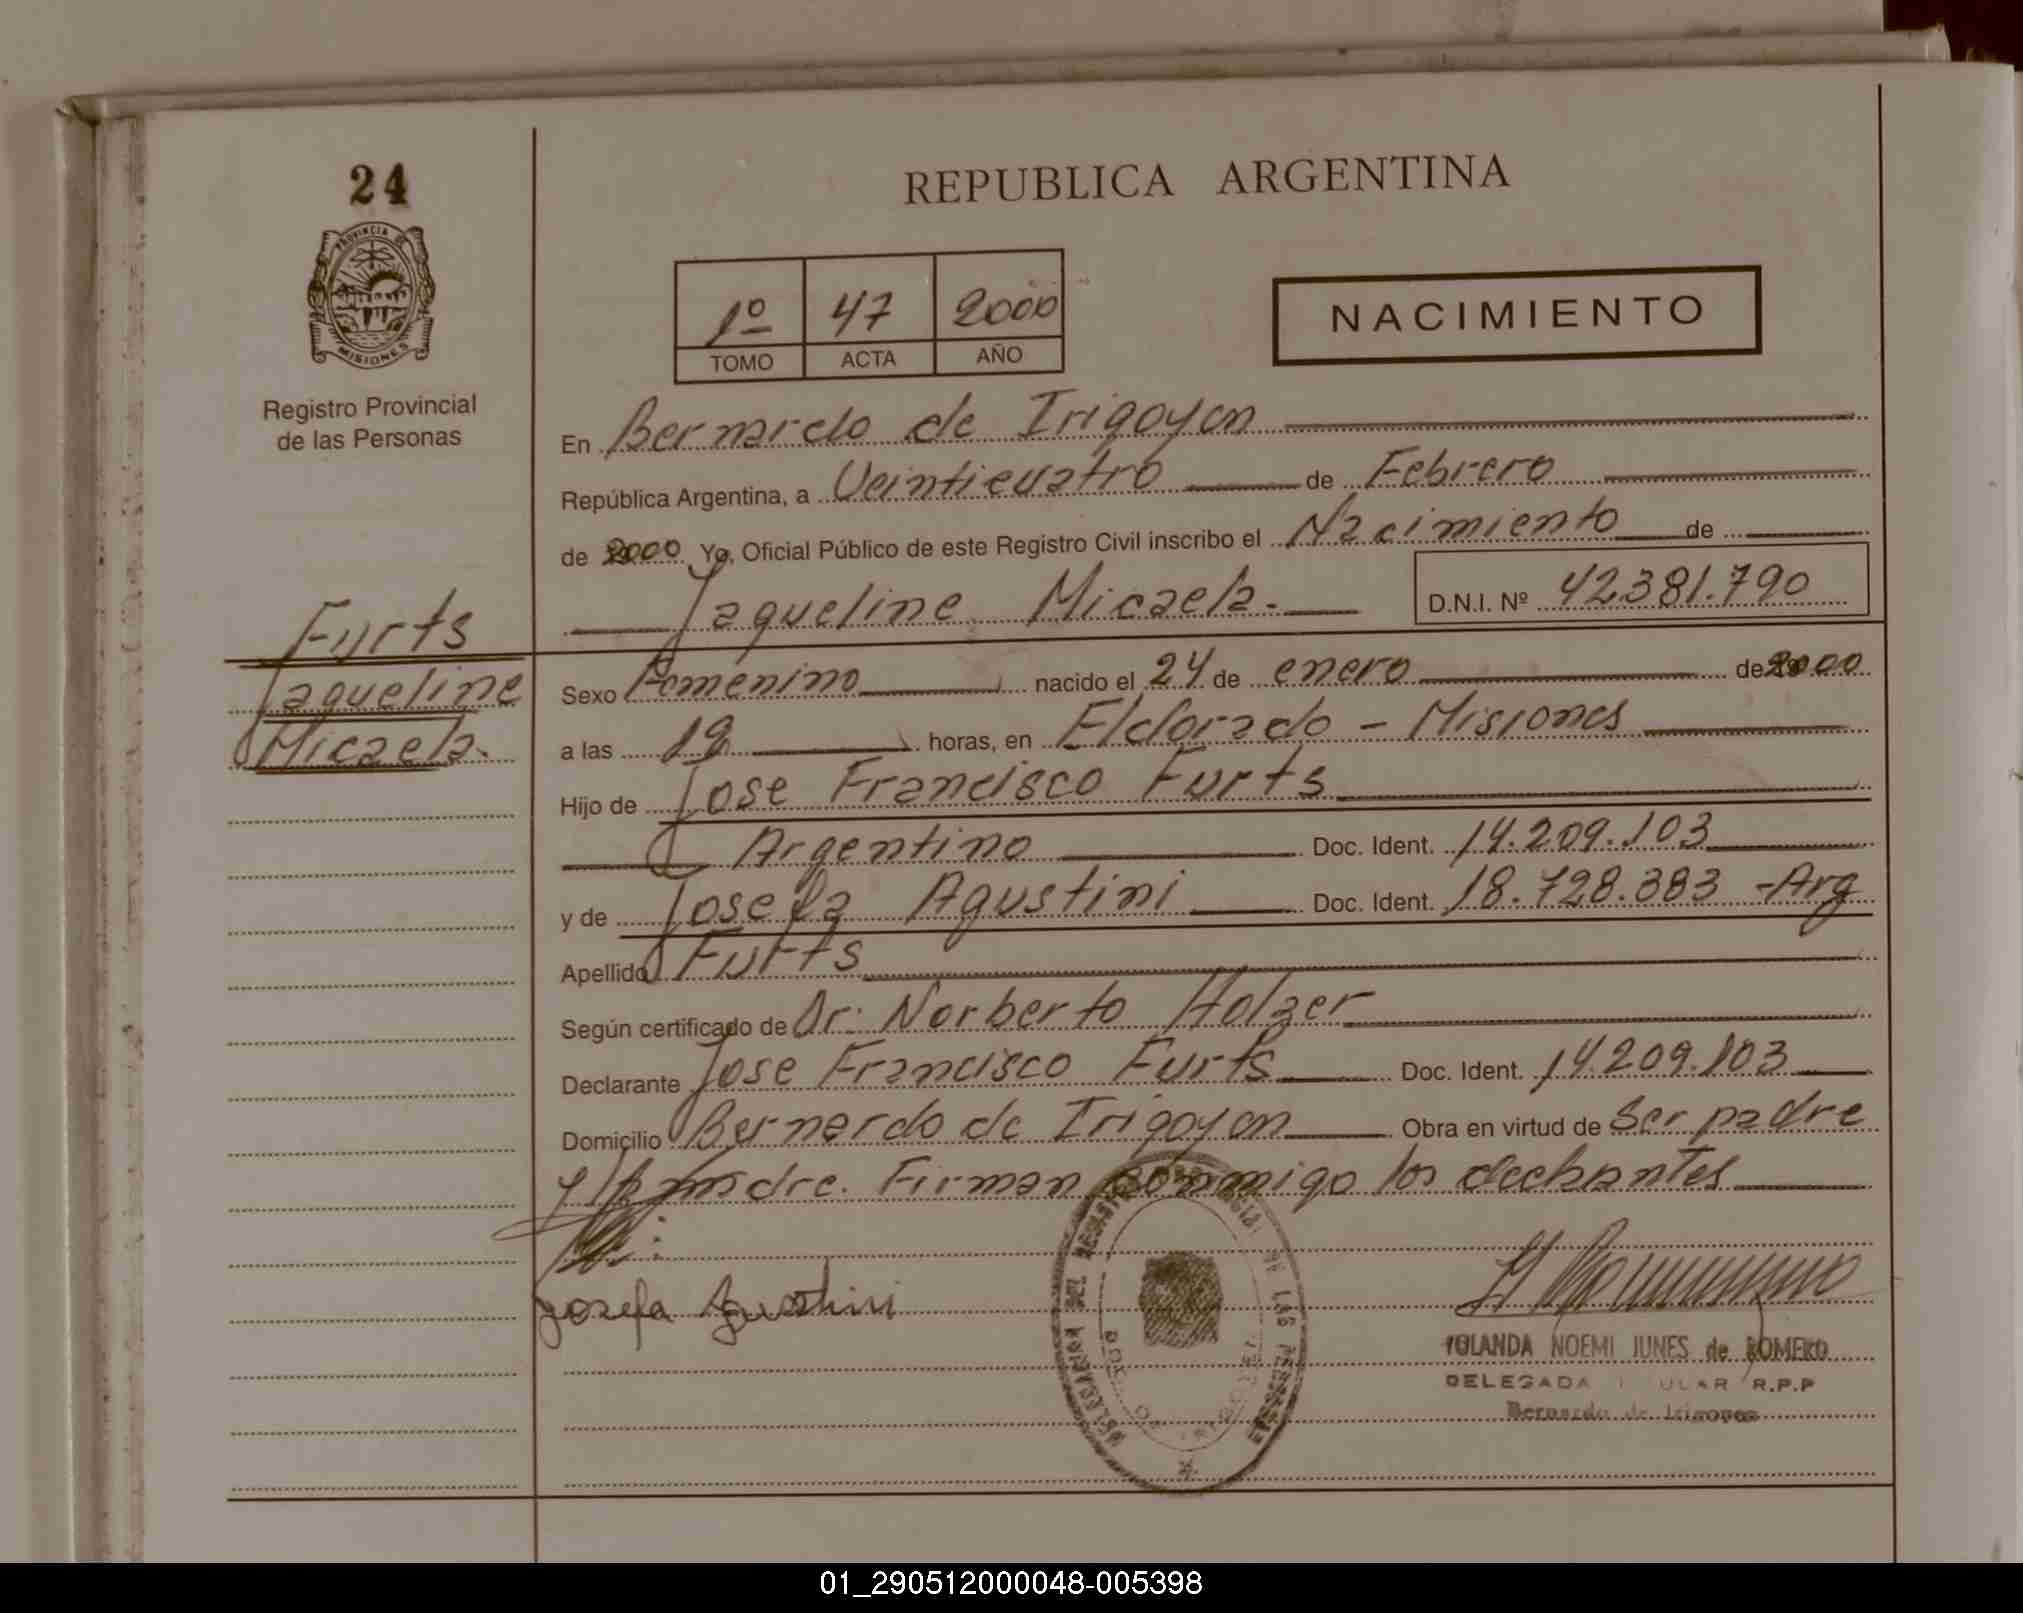 24
REPUBLICA ARGENTINA
PROVINCIA DE
MISIONES
Registro Provincial
de las Personas
1º 47 2000
TOMO ACTA AÑO
NACIMIENTO
En Bernardo de Irigoyen
República Argentina, a Veinticuatro de Febrero
de 2000 Yo, Oficial Público de este Registro Civil inscribo el Nacimiento de
Jaqueline Micaela.
D.N.I. Nº 42.381.790
Furts
Jaqueline
Micaela.
Sexo Femenino nacido el 24 de enero de 2000
a las 19 horas, en Eldorado - Misiones
Hijo de Jose Francisco Furts
Argentino Doc. Ident. 14.209.103
y de Josefa Agustini Doc. Ident. 18.728.383 - Arg
Apellido Furts
Según certificado de Dr. Norberto Holzer
Declarante Jose Francisco Furts Doc. Ident. 14.209.103
Domicilio Bernardo de Irigoyen Obra en virtud de Ser padre
y madre. Firman conmigo los declarantes
Josefa Agustini
YOLANDA NOEMI JUNES de ROMERO
DELEGADA R.P.P
Bernardo de Irigoyen
01_290512000048-005398